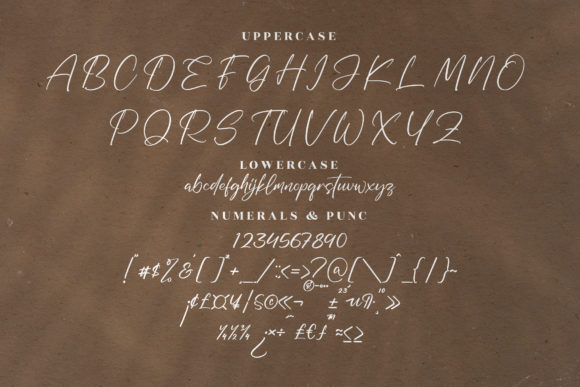 UPPERCASE
ABCDEFGHIJKLMNO
PQRSTUVWXYZ
LOWERCASE
abcdefghijklmnopqrstuvwxyz
NUMERALS & PUNC
1234567890
!"#$%&'[]*+,_/:;<=>?@[\]^_{|}~
¡¢£¤¥/§©«¬ ± µ¶ »
¼½¾ ¿×÷ ££ƒ ≈≤≥